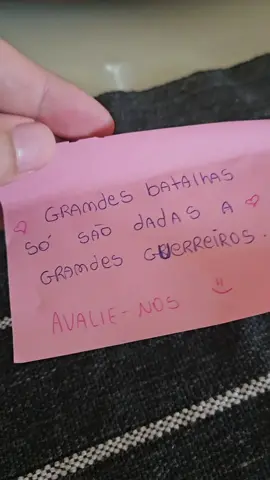 GRANDES BATALHAS
SÓ SÃO DADAS A
GRANDES GUERREIROS.
AVALIE-NOS